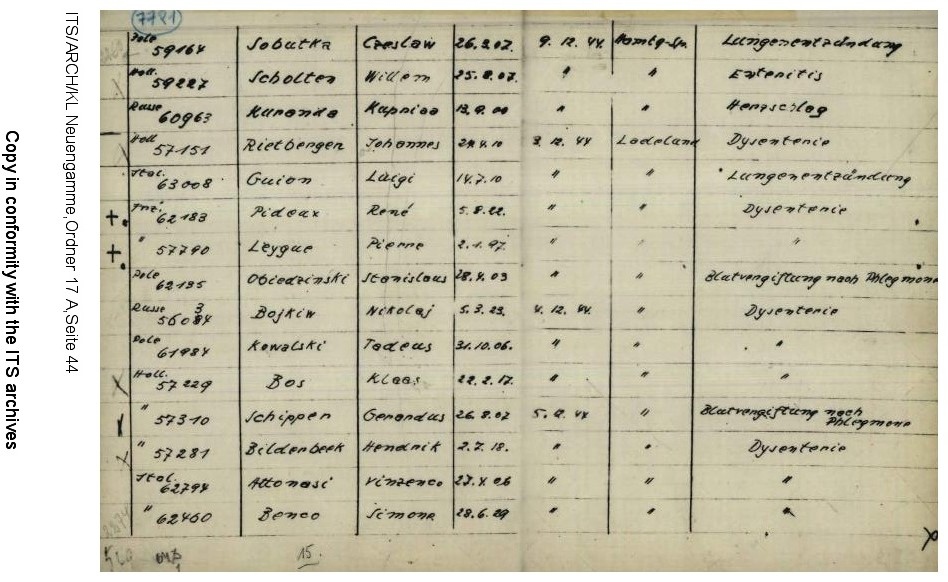 Copy in conformity with the ITS archives
ITS/ARCH/KL Neuengamme, Ordner 17 A, Seite 44
7721
Pole 59164 Sobutka Czeslaw 26.3.07. 9.12.44 Hambg-Sp. Lungenentzündung
Holl. 59227 Scholten Willem 25.8.07. " " Enteritis
Russe 60963 Kuranda Kapniaa 13.9.00 " " Herzschlag
Holl 57151 Rietbergen Johannes 24.4.10 3.12.44 Ladelund Dysenterie
Ital. 63008 Guion Luigi 14.7.10 " " Lungenentzündung
+ Frz. 62183 Pideux René 5.8.22. " " Dysenterie
+ " 57790 Leygue Pierre 2.1.97. " " "
Pole 62195 Obiedzinski Stanislaus 28.4.09 " " Blutvergiftung nach Phlegmone
Russe 3
56084 Bojkiw Nikolaj 5.3.23. 4.12.44. " Dysenterie
Pole 61984 Kowalski Tadeus 31.10.06. " " "
Holl. 57229 Bos Klaas 22.2.17. " " "
" 57310 Schipper Gerardus 26.8.02 5.12.44 " Blutvergiftung nach
Phlegmone
" 57281 Bildenbeek Hendrik 2.7.18. " " Dysenterie
Ital. 62794 Attonasi Vinzenco 27.4.06 " " "
" 62460 Benco Simone 28.6.29 " " "
15.